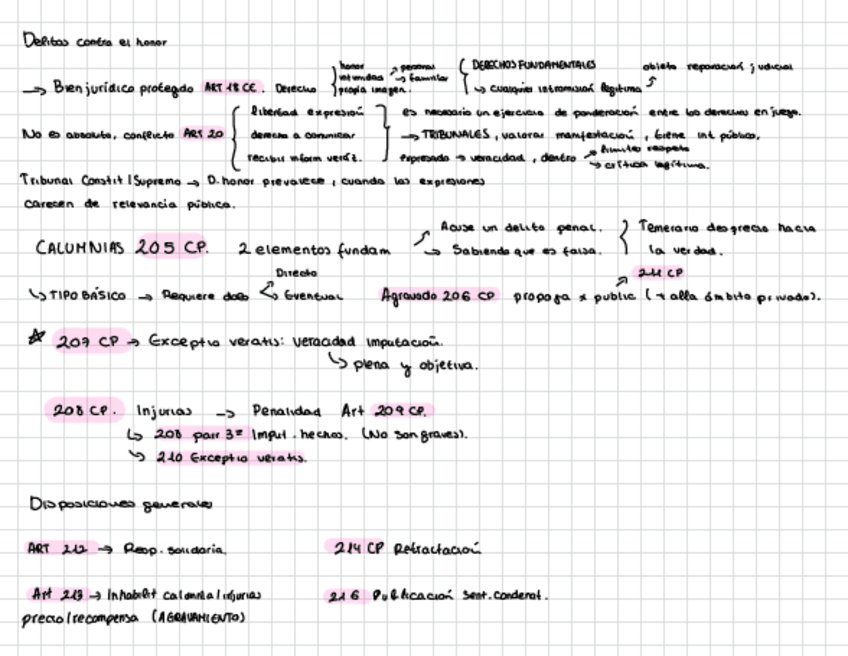 Delitos contra el honor
honor → personal { DERECHOS FUNDAMENTALES objeto reparación judicial
→ Bien jurídico protegido ART 18 CE. Derecho intimidad → familiar
propia imagen. ↳ cualquier intromisión legítima
libertad expresión es necesario un ejercicio de ponderación entre los derechos en juego.
No es absoluto, conflicto ART 20 derecho a comunicar → TRIBUNALES, valorar manifestación, tiene int público,
recibir inform veráz. expresado → veracidad, dentro → límites respeto
→ crítica legítima.
Tribunal Constit/Supremo → D. honor prevalece, cuando las expresiones
carecen de relevancia pública.
CALUMNIAS 205 CP. 2 elementos fundam → Acuse un delito penal. } Temerario desprecio hacia
→ Sabiendo que es falsa. la verdad.
Directo 211 CP
↳ TIPO BÁSICO → Requiere dolo < Eventual Agravado 206 CP propaga x public (+ alla ámbito privado).
☆ 207 CP → Exceptio veratis: veracidad imputación.
↳ plena y objetiva.
208 CP. Injurias → Penalidad Art 209 CP.
↳ 208 parr 3º Imput. hechos. (No son graves).
↳ 210 Exceptio veratis.
Disposiciones generales
ART 212 → Resp. solidaria. 214 CP Retractación
Art 213 → Inhabilit calumnia/injurias 216 Publicación Sent. condenat.
precio/recompensa (AGRAVAMIENTO)